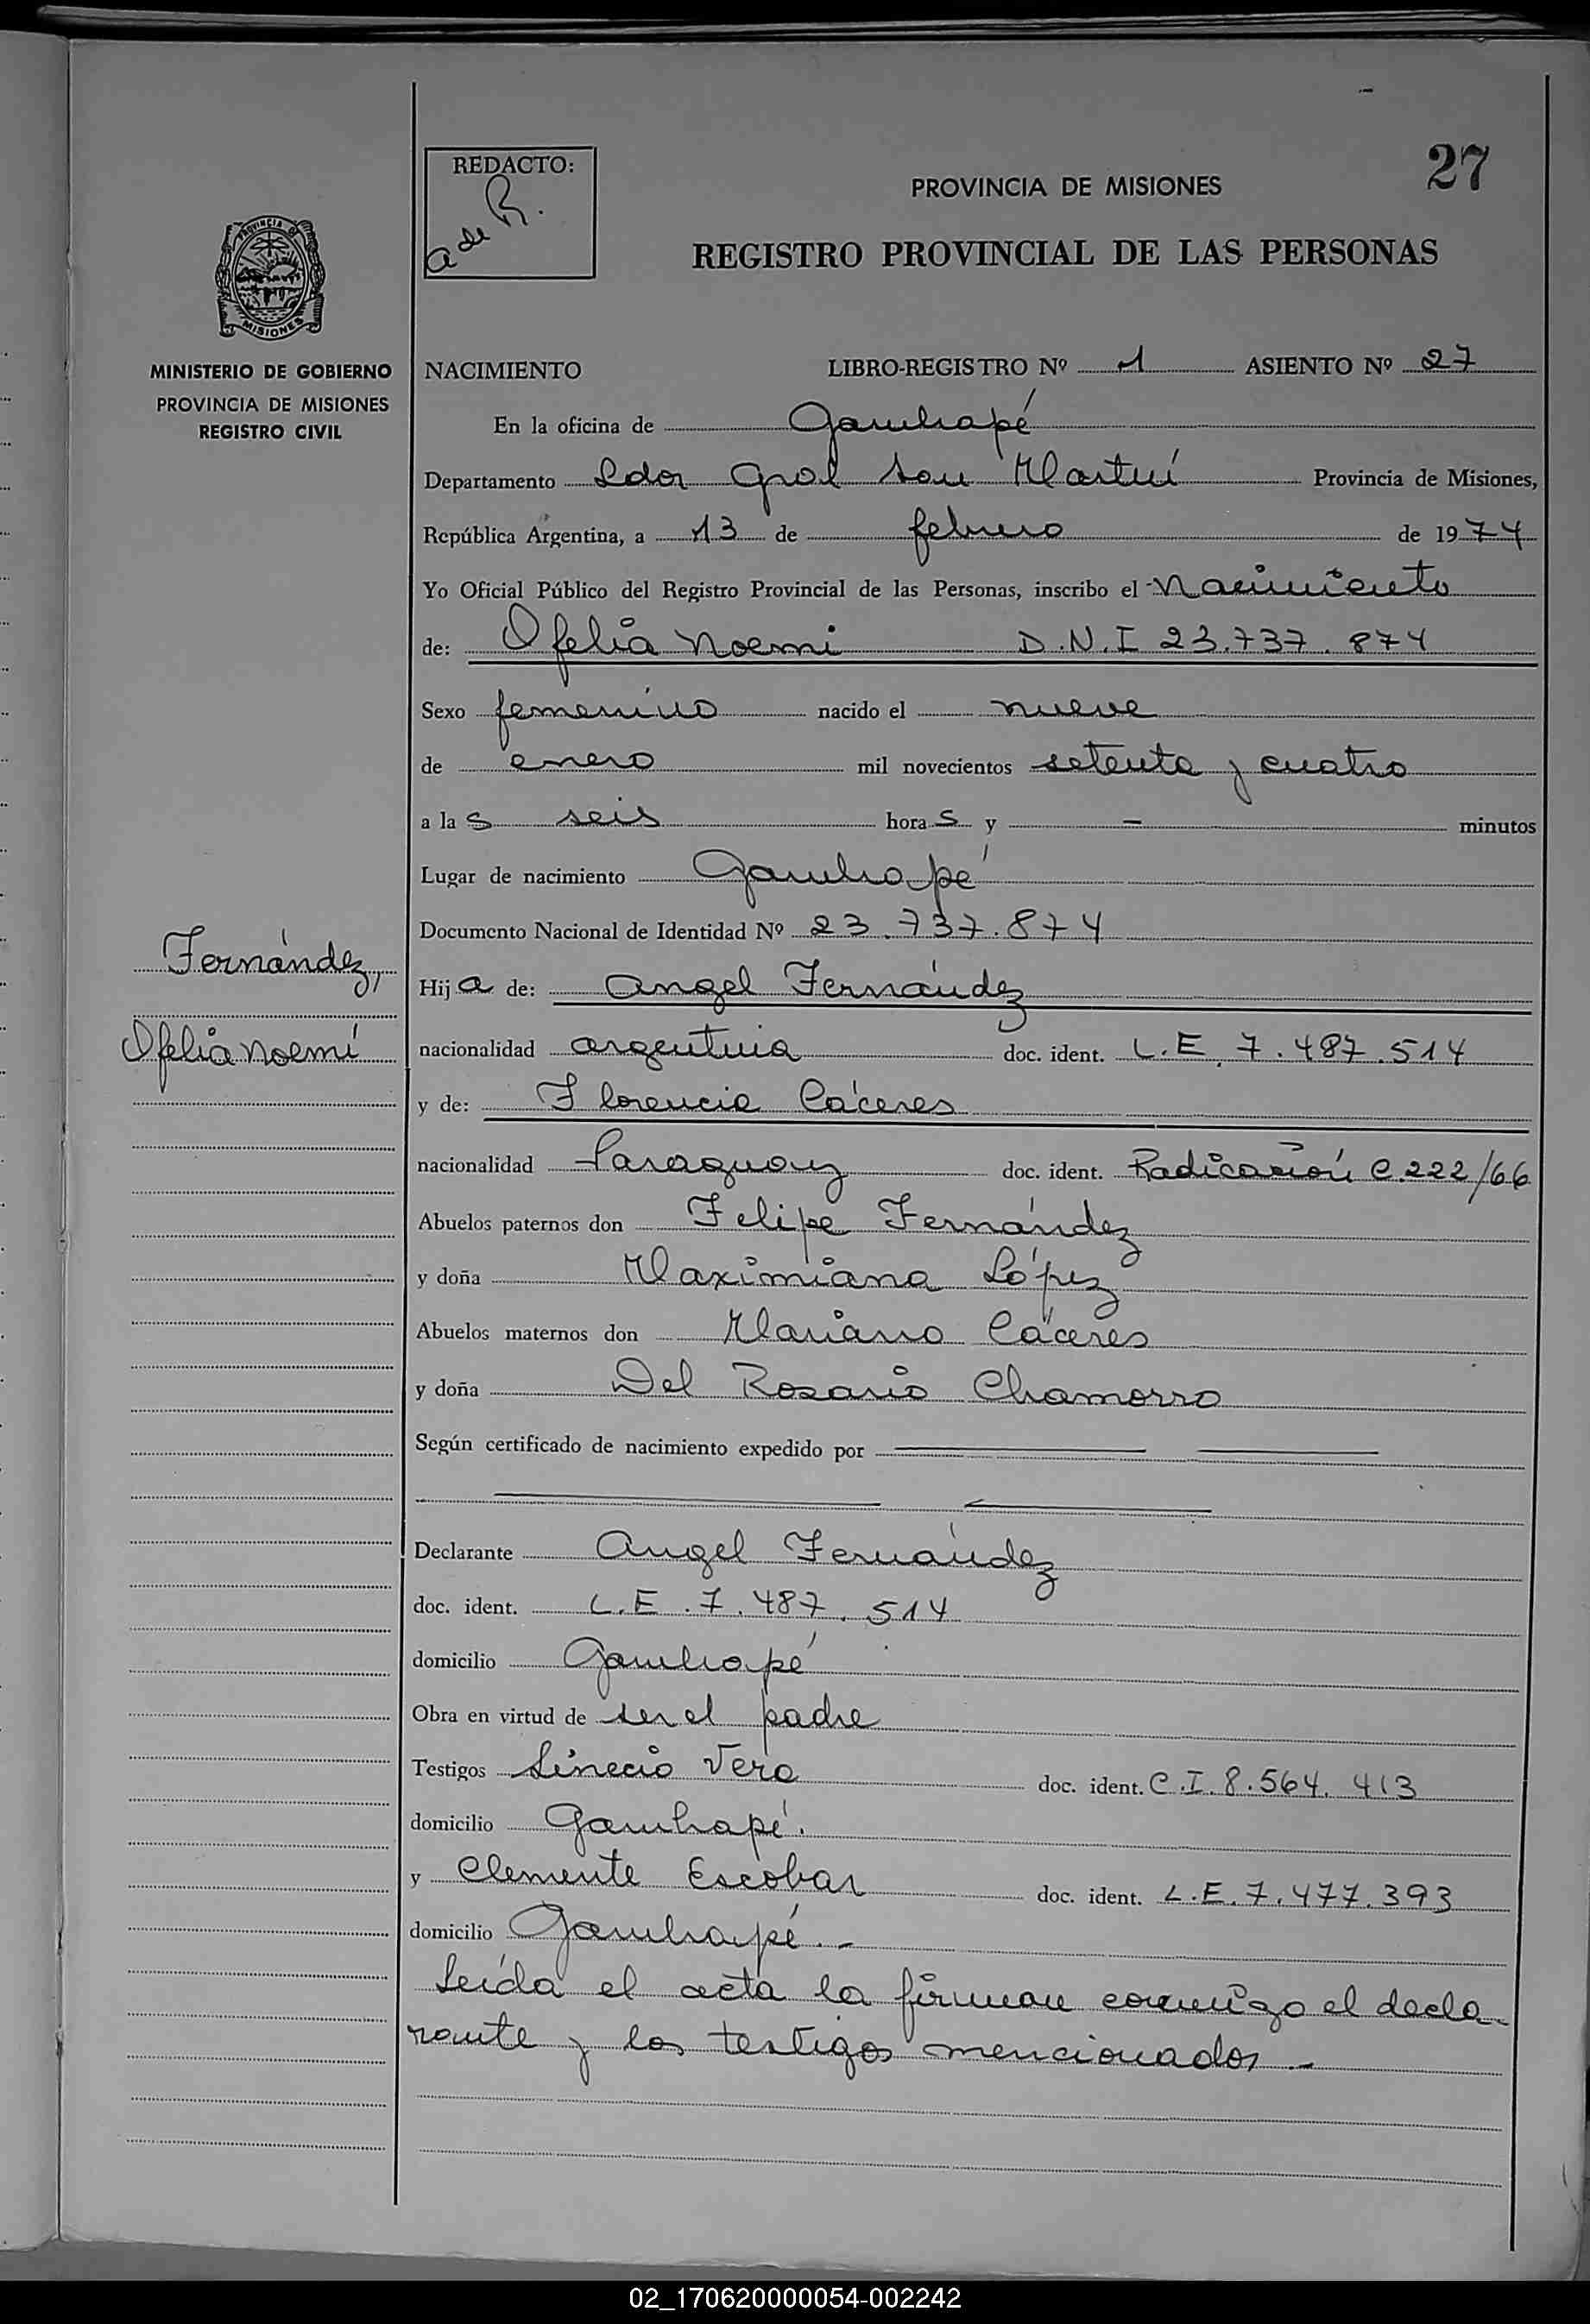 27
REDACTO:
a de R.
PROVINCIA DE MISIONES
REGISTRO PROVINCIAL DE LAS PERSONAS
PROVINCIA DE
MISIONES
MINISTERIO DE GOBIERNO
PROVINCIA DE MISIONES
REGISTRO CIVIL
NACIMIENTO LIBRO-REGISTRO Nº 1 ASIENTO Nº 27
En la oficina de Garuhapé
Departamento Ldor Gral San Martín Provincia de Misiones,
República Argentina, a 13 de febrero de 1974
Yo Oficial Público del Registro Provincial de las Personas, inscribo el Nacimiento
de: Ofelia Noemi D.N.I 23.737.874
Sexo femenino nacido el nueve
de enero mil novecientos setenta y cuatro
a las seis horas y - minutos
Lugar de nacimiento Garuhapé
Documento Nacional de Identidad Nº 23.737.874
Fernández,
Ofelia Noemí
Hija de: Angel Fernández
nacionalidad argentina doc. ident. L.E. 7.487.514
y de: Florencia Cáceres
nacionalidad Paraguay doc. ident. Radicación C.222/66
Abuelos paternos don Felipe Fernández
y doña Maximiana López
Abuelos maternos don Mariano Cáceres
y doña Del Rosario Chamorro
Según certificado de nacimiento expedido por
Declarante Angel Fernández
doc. ident. L.E. 7.487.514
domicilio Garuhapé
Obra en virtud de ser el padre
Testigos Sinecio Vera doc. ident. C.I. 8.564.413
domicilio Garuhapé.
y Clemente Escobar doc. ident. L.E. 7.477.393
domicilio Garuhapé.-
Leída el acta la firman conmigo el decla-
rante y los testigos mencionados.-
02_170620000054-002242